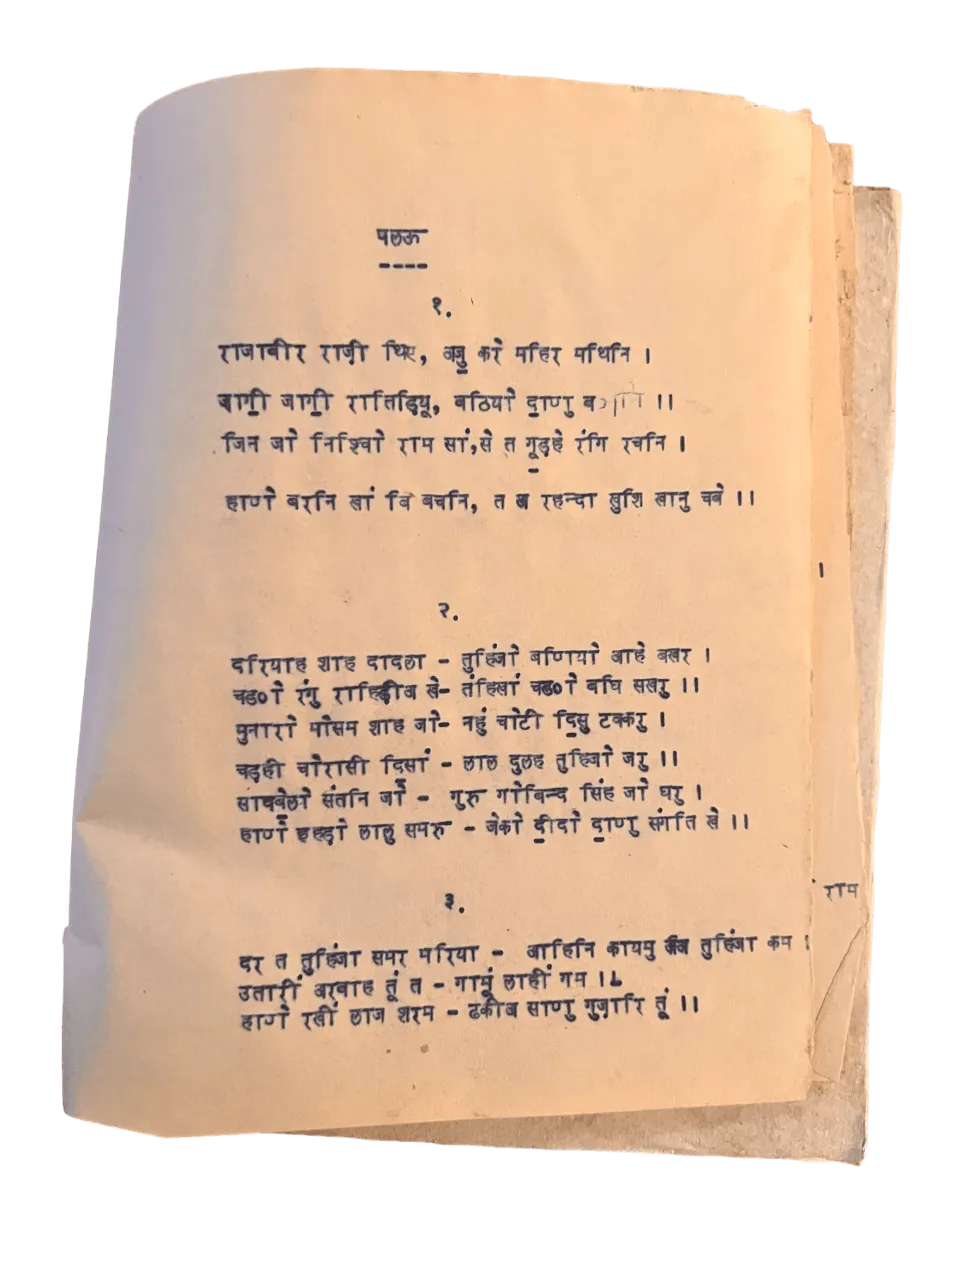 पलऊ
----
१.
राजावीर राज़ी थिए, अॼु करे महिर मथनि ।
ॼाॻी जाॻी रातिड़ियू, वठियो ॾाणु ।।
जिन जो निश्चो राम सां,से त गूढ़हे रंगि रचनि ।
हाणे बरनि खां बि बचनि, त रहन्दा खुशि खानु चवे ।।
२.
दरियाह शाह दादला - तुहिंजो बणियो आहे बखर ।
चढ॰ो रंगु राहिड़ीअ खे- तंहिखां चढ॰ो बधि सखरु ।।
मुनारो मोसम शाह जो- नहुं चोटी ॾिसु टक्करु ।
चढ़ही चोरासी ॾिसां - लाल दुलह तुहिजो जरु ।।
साधॿेलो संतनि जो - गुरु गोबिन्द सिंह जो घरु ।
हाणे लालु समरु - जेको ॾीदो ॾाणु संगति खे ।।
३.
दर त तुहिंजा समर भरिया - आहिनि कायमु तुहिंजा कम ।
उतारीं अरवाह तूं त - गामूं लाहीं गम ।।
हाणे रखीं लाज शरम - ढकीअ साणु गुज़ारि तूं ।।
।
राम